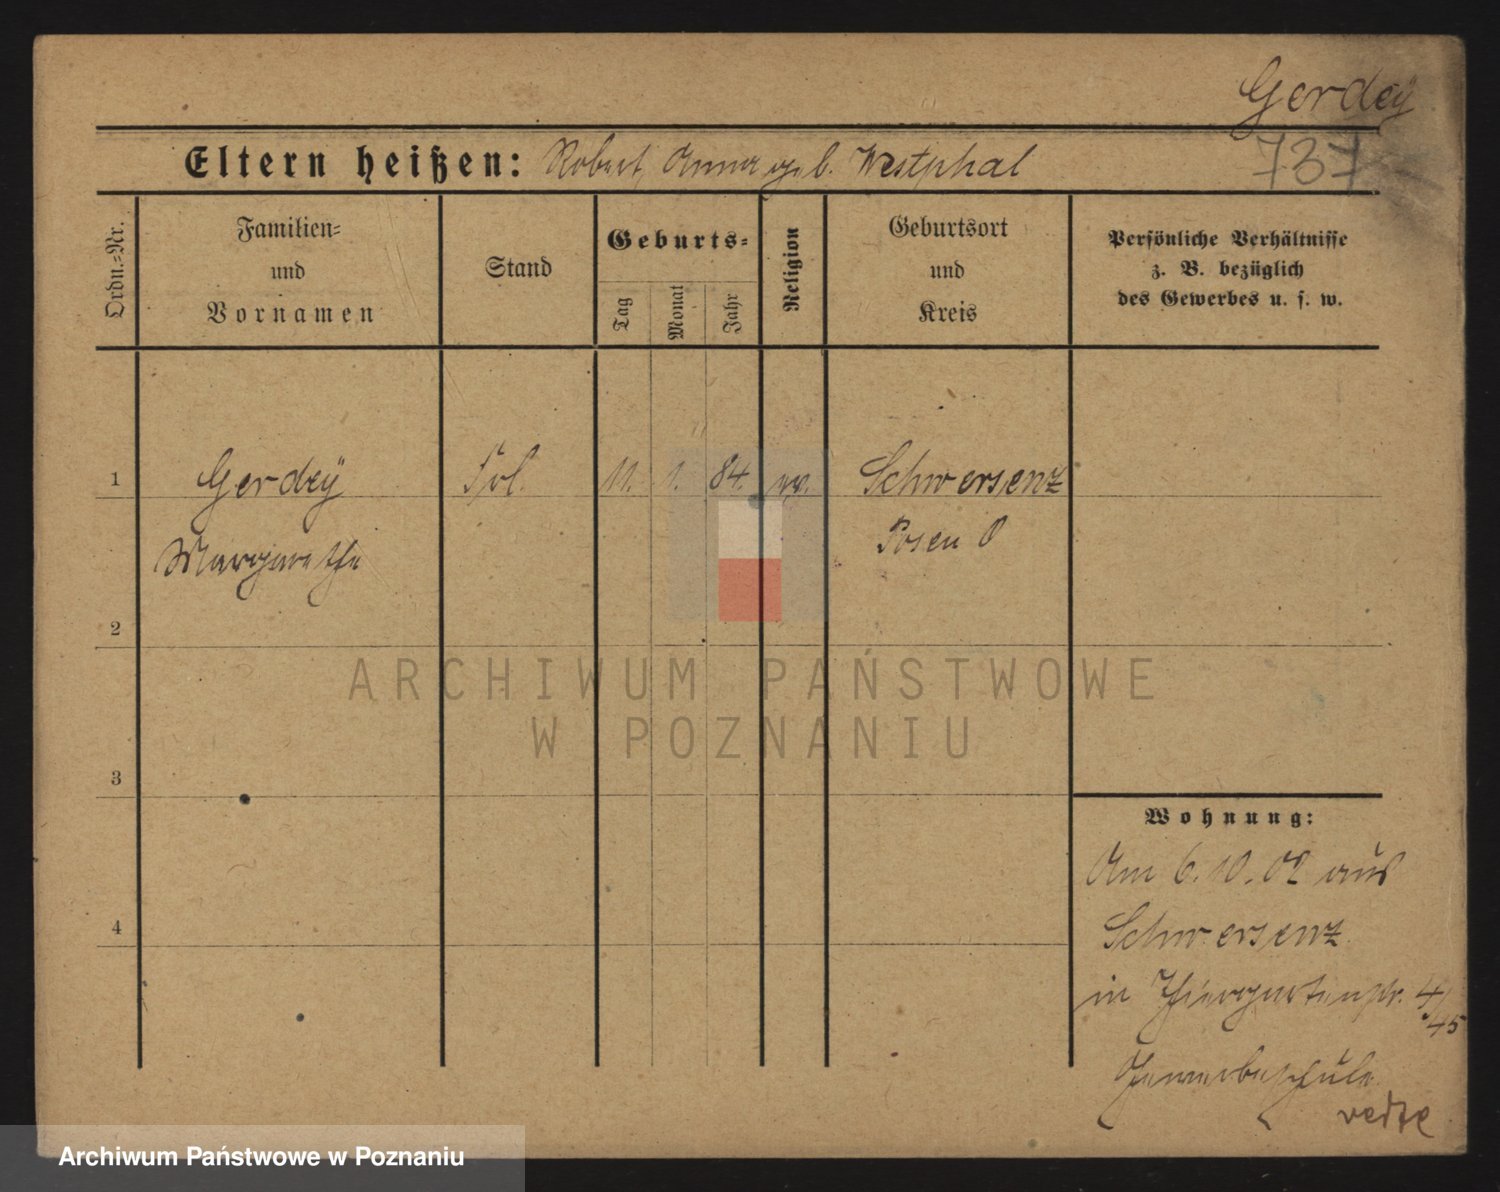 Gerdeÿ
737
Eltern heißen: Robert, Anna geb. Westphal
Ordn.-Nr.
Familien-
und
Vornamen
Stand
Geburts-
Tag
Monat
Jahr
Religion
Geburtsort
und
Kreis
Persönliche Verhältnisse
z. B. bezüglich
des Gewerbes u. s. w.
1 Gerdeÿ Frl. 11. 1. 84. ev. Schwersenz
Margarethe Posen O
2
ARCHIWUM PAŃSTWOWE
W POZNANIU
3
Wohnung:
Am 6.10.02 aus
4
Schwersenz
in Thiergartenstr. 4/45
Gewerbeschule
Archiwum Państwowe w Poznaniu